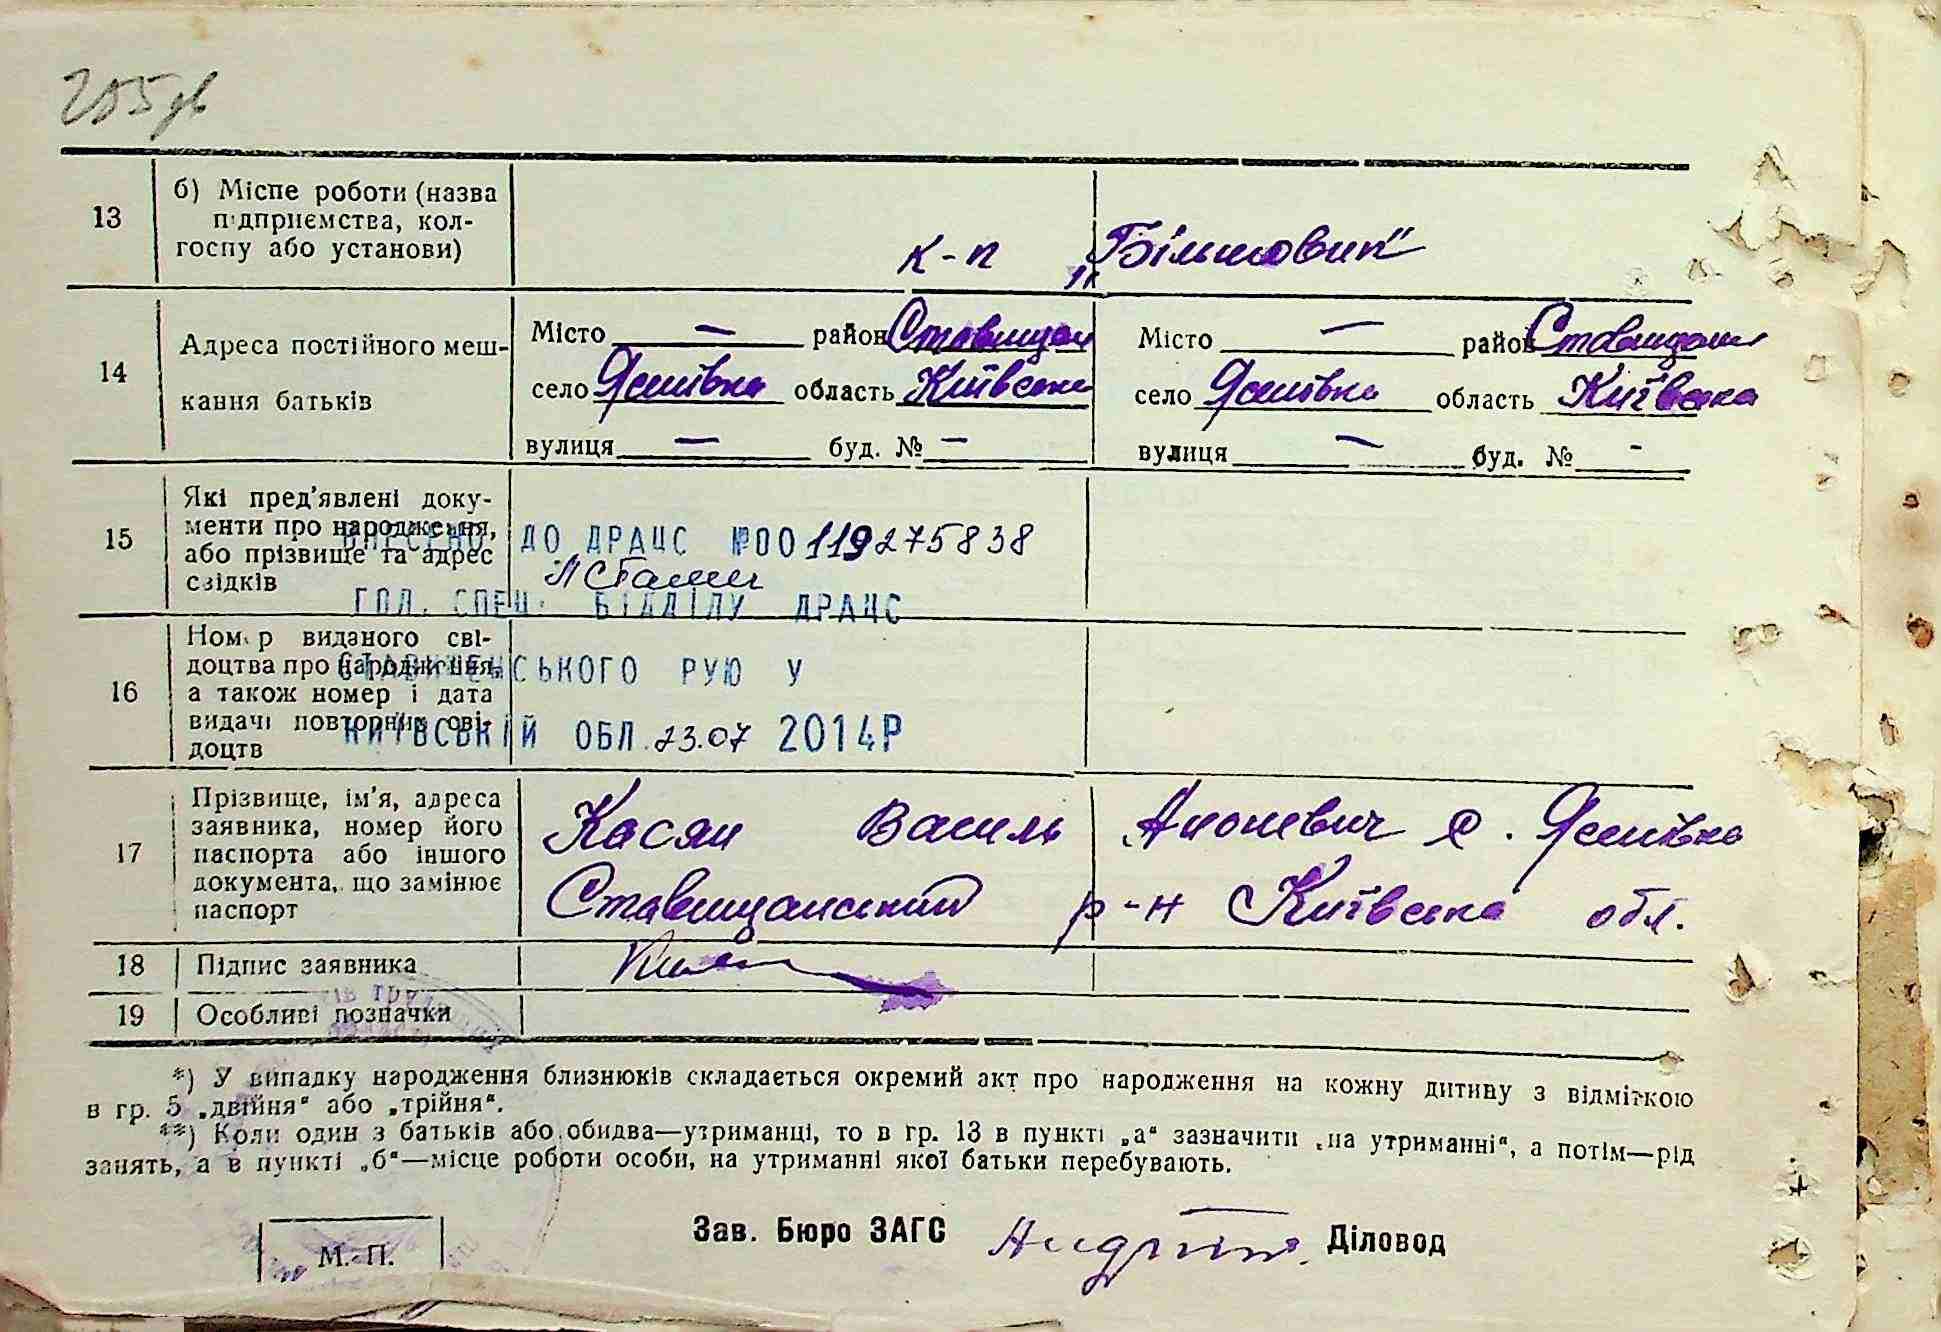 205 зв
13 б) Місце роботи (назва
підприємства, кол-
госпу або установи)
к-п „Більшовик"
14 Адреса постійного меш-
кання батьків
Місто — район Ставищан
село Яснівка область Київська
вулиця — буд. № —
Місто — район Ставищан
село Яснівка область Київська
вулиця — буд. № -
15 Які пред'явлені доку-
менти про народження,
або прізвище та адрес
свідків
ВНЕСЕНО ДО ДРАЦС №00119275838
ГОЛ. СПЕЦ. ВІДДІЛУ ДРАЦС
16 Номер виданого сві-
доцтва про народження,
а також номер і дата
видачі повторних сві-
доцтв
СТАВИЩЕНСЬКОГО РУЮ У
КИЇВСЬКІЙ ОБЛ. 23.07 2014Р
17 Прізвище, ім'я, адреса
заявника, номер його
паспорта або іншого
документа, що замінює
паспорт
Касян Василь с. Яснівка
Ставищанський р-н Київська обл.
18 Підпис заявника
19 Особливі позначки
*) У випадку народження близнюків складається окремий акт про народження на кожну дитину з відміткою
в гр. 5 „двійня" або „трійня".
**) Коли один з батьків або обидва—утриманці, то в гр. 13 в пункті „а" зазначити „на утриманні", а потім—рід
занять, а в пункті „б"—місце роботи особи, на утриманні якої батьки перебувають.
М. П.
Зав. Бюро ЗАГС Діловод